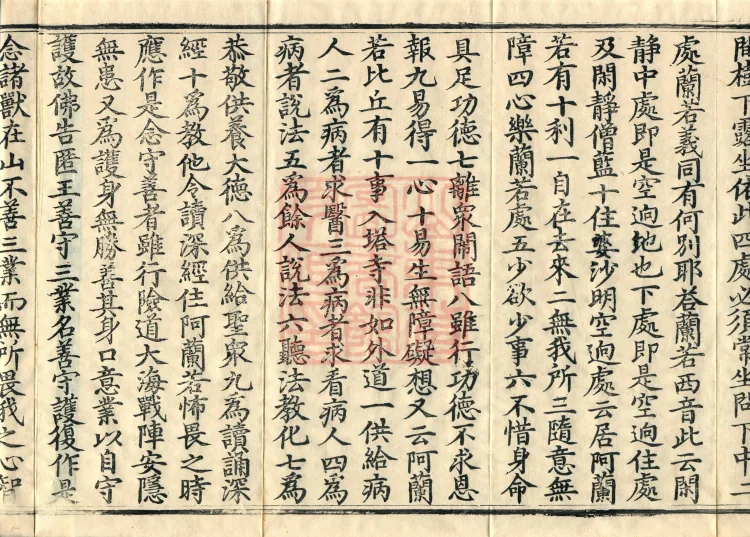 間樹下露坐依此四處必須常坐問下中二
處蘭若義同有何別耶荅蘭若西音此云閑
静中處即是空逈地也下處即是空逈住處
及閑静僧藍十住婆沙明空逈處云居阿蘭
若有十利一自在去來二無我所三隨意無
障四心樂蘭若處五少欲少事六不惜身命
具足功德七離衆閙語八雖行功德不求恩
報九易得一心十易生無障礙想又云阿蘭
若比丘有十事入塔寺非如外道一供給病
人二爲病者求醫三爲病者求看病人四爲
病者說法五爲餘人說法六聽法教化七爲
恭敬供養大德八爲供給聖衆九爲讀誦深
經十爲教他令讀深經住阿蘭若怖畏之時
應作是念守善者雖行險道大海戰陣安隱
無患又爲護身無勝善其身口意業以自守
護故佛告匿王善守三業名善守護復作是
念諸獸在山不善三業而無所畏我之心智